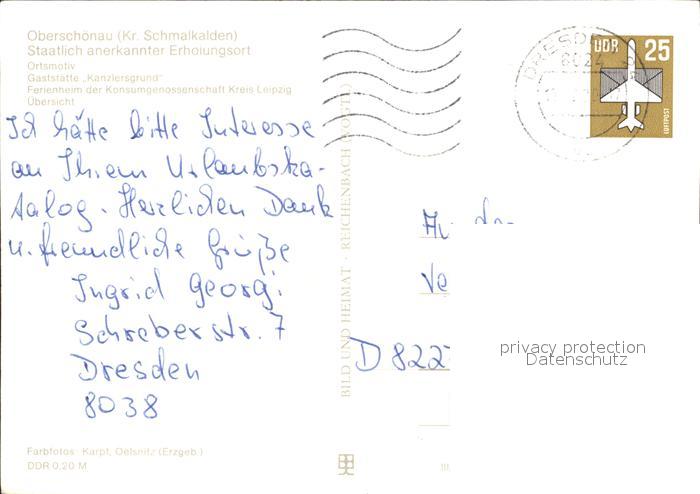 Oberschönau (Kr. Schmalkalden)
Staatlich anerkannter Erholungsort
Ortsmotiv
Gaststätte „Kanzlersgrund"
Ferienheim der Konsumgenossenschaft Kreis Leipzig
Übersicht
Ich hätte bitte Interesse
an Ihrem Urlaubska-
talog. Herzlichen Dank
u. freundliche Grüße
Ingrid Georgi
Schreberstr. 7
Dresden
8038
Farbfotos: Karpf, Oelsnitz (Erzgeb.)
DDR 0,20 M
BILD UND HEIMAT · REICHENBACH (VOGTL)
DRESDEN
8024
DDR 25
LUFTPOST
An
Ve
D 8222
privacy protection
Datenschutz